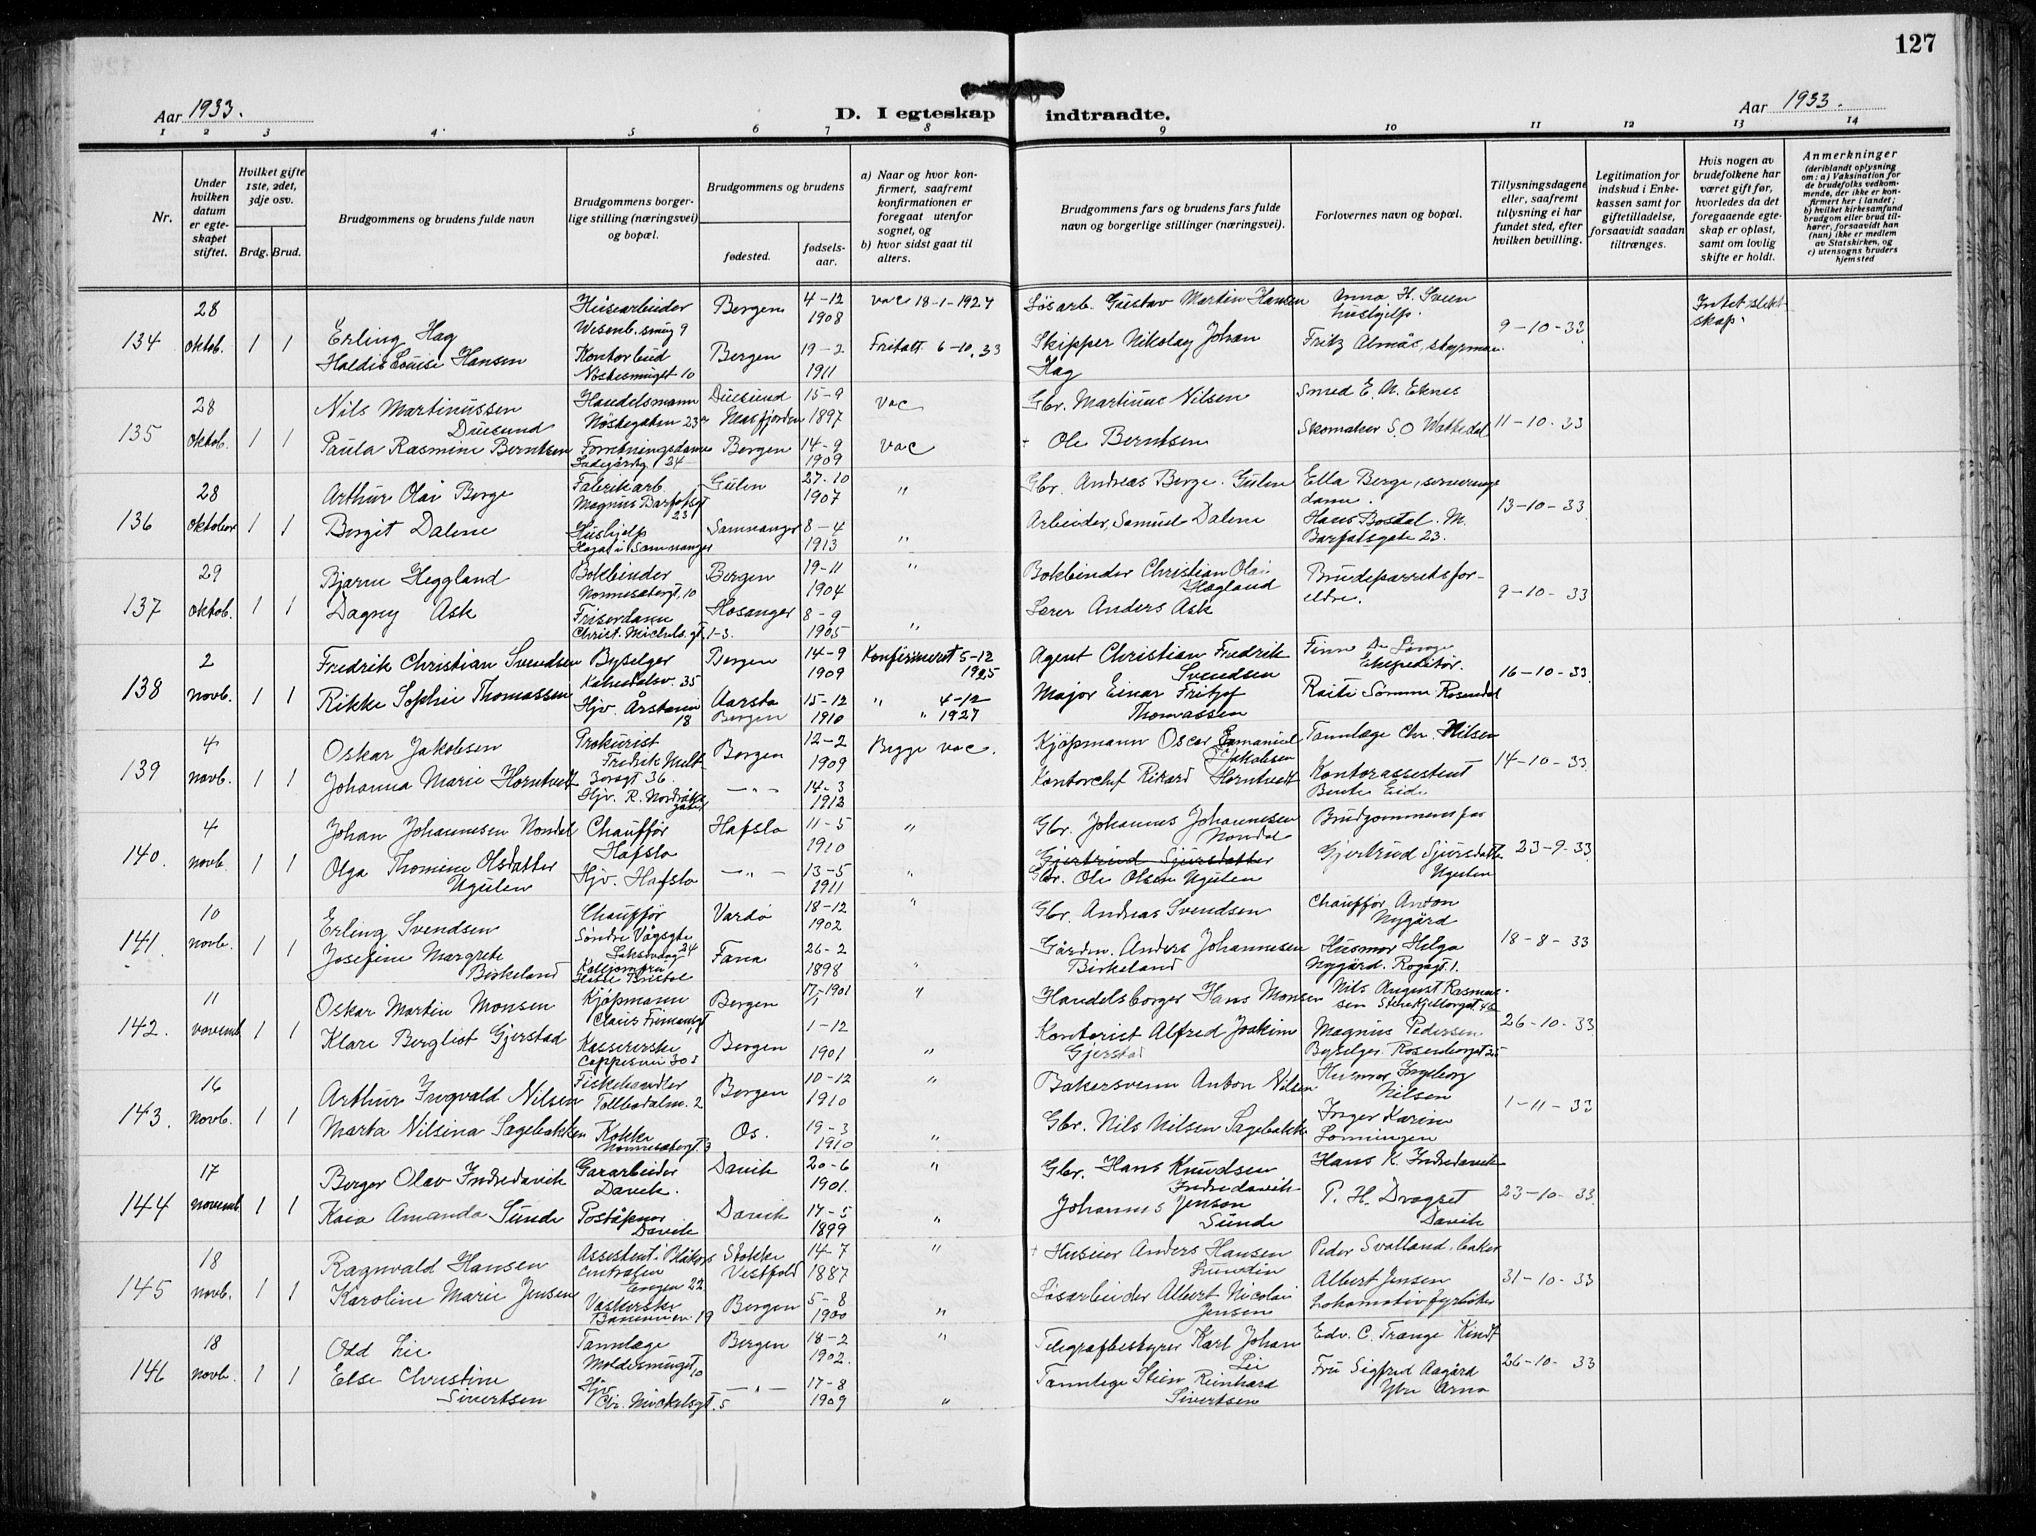 127
Aar 1933.
D. I egteskap indtraadte.
Aar 1933.
1 2 3 4 5 6 7 8 9 10 11 12 13 14
Nr.
Under hvilken datum er egteskapet stiftet.
Hvilket gifte 1ste, 2det, 3dje osv.
Brdg. Brud.
Brudgommens og brudens fulde navn
Brudgommens borgerlige stilling (næringsvei) og bopæl.
Brudgommens og brudens
fødested.
fødselsaar.
a) Naar og hvor konfirmert, saafremt konfirmationen er foregaat utenfor sognet, og
b) hvor sidst gaat til alters.
Brudgommens fars og brudens fars fulde navn og borgerlige stillinger (næringsvei).
Forlovernes navn og bopæl.
Tillysningsdagene eller, saafremt tillysning ei har fundet sted, efter hvilken bevilling.
Legitimation for indskud i Enkekassen samt for giftetilladelse, forsaavidt saadan tiltrænges.
Hvis nogen av brudefolkene har været gift før, hvorledes da det foregaaende egteskap er opløst, samt om lovlig skifte er holdt.
Anmerkninger
(deriblandt oplysning om: a) Vaksination for de brudefolks vedkommende, der ikke er konfirmert her i landet;
b) hvilket kirkesamfund brudgom eller brud tilhører, forsaavidt han (hun) ikke er medlem av Statskirken, og
c) utensogns bruders hjemsted
134 28 oktob. 1 1
Erling Hag
Haldis Louise Hansen
Husarbeider
Wesenb. smug 9
Kontorbud
Nøstesmuget 10
Bergen 4-12 1908
Bergen 19-2 1911
vac 18-1-1927
Fritatt 6-10.33
Løsarb. Gustav Martin Hansen
Skipper Nikolay Johan Hag
Anna H. Sveen
hushjelp.
Fritz Almås, styrman
9-10-33
Intet slektskap.
135 28 oktob. 1 1
Nils Martinussen
Duesund
Paula Rasmine Berntsen
Handelsmann
Nøstegaten 23
Forretningsdame
Ladegårdsg 24
Duesund
Masfjorden
15-9 1897
Bergen 14-9 1909
vac
vac
Gbr. Martinus Nilsen
+ Ole Berntsen
Smed E. M. Eknes
Skomaker S. O Wattedal
11-10-33
136 28 oktober 1 1
Arthur Olai Berge
Bergit Dalene
Fabrikarb
Magnus Barfotsgt 23
Hushjelp
Haga i Samnanger
Gulen 27-10 1907
Samnanger 8-4 1913
"
"
Gbr. Andreas Berge. Gulen
Arbeider Samuel Dalene
Ella Berge, serveringsdame.
Hans Bostal. M.
Barfotsgate 23.
13-10-33
137 29 oktob. 1 1
Bjarne Heggland
Dagny Ask
Bokbinder
Nonnesætergt. 10
Frisørdame
Christ. Michels. gt. 1-3.
Bergen 19-11 1904
Hosanger 8-9 1905
"
"
Bokbinder Christian Olai
Hegland
Lærer Anders Ask
Brudeparrets foreldre.
9-10-33
138 2 novb. 1 1
Fredrik Christian Svendsen
Rikke Sophie Thomassen
Byselger
Kalvedalsv. 35
Hjv. Årstadvn 18
Bergen 14-9 1909
Aarstad
Bergen
15-12 1910
Konfirmert 5-12 1925
" 4-12
" 1927
Agent Christian Fredrik
Svendsen
Major Einar Fritjof
Thomassen
Finn De Lange
Ekspeditør.
Raiti Sømme Rosendal
16-10-33
139 4 novb. 1 1
Oskar Jakobsen
Johanna Marie Horntvedt
Prokurist
Fredrik Meltzersgt 36.
Hjv. R. Nordråks gate
Bergen 12-2 1909
-"- 14-3 1912
Begge vac.
Kjøpmann Oscar Emanuel
Jakobsen
Kontorchef Rikard Horntvedt
Tannlæge Chr. Nilsen
Kontorassistent
Bente Eide
14-10-33
140. 4 novb. 1 1
Johan Johannesen Nondal
Olga Thomine Olsdatter
Ugulen
Chauffør
Hafslo
Hjv. Hafslo
Hafslo 11-5 1910
-"- 13-5 1911
"
"
Gbr. Johannes Johannesen
Nondal
Gjertrud Sjursdatter
Gbr. Ole Olsen Ugulen
Brudgommens far
Gjertrud Sjursdatter
Ugulen
23-9-33
141. 10 novb. 1 1
Erling Svendsen
Josefine Margrete
Birkeland
Chauffør
Søndre Vågsgt.
Laksevaag 24
Kaldjomfru
Hotel Bristol
Vardø 18-12 1902
Fana 26-2 1898
"
"
Gbr. Andreas Svendsen
Gårdm. Anders Johannesen
Birkeland
Chauffør Anton
Nygård
Husmor Helga
Nygård. Rogagt 1.
18-8-33
142. 11 novemb 1 1
Oskar Martin Monsen
Klare Bergliot Gjerstad
Kjøpmann
Claus Frimansgt
Kassererske
Cappesvei 30
Bergen 17/1-1901
Bergen 1-12 1901
"
"
Handelsborger Hans Monsen
Kontorist Alfred Joakim
Gjerstad
Nils August Rasmussen Stenkjellergt 46
Magnus Pedersen
Byselger. Rosenbergst 25
26-10-33
143. 16 novb. 1 1
Arthur Ingvald Nilsen
Marta Nilsina Sagebakken
Fiskehandler
Tollbodalm. 2
Kokke
Nonnesætergt. 3
Bergen 10-12 1910
Os. 19-3 1910
"
"
Bakersvenn Anton Nilsen
Gbr. Nils Nilsen Sagebakke
Husmor Ingeborg
Nilsen
Inger Karine
Lonningen
1-11-33
144 17 novemb 1 1
Berger Olav Indredavik
Kaia Amanda Sunde
Gararbeider
Davik.
Poståpner
Davik
Davik 20-6 1901.
Davik 17-5 1899
"
"
Gbr. Hans Knudsen
Indredavik
Johannes Jenson
Sunde
Hans K. Indredavik
P. H. Dragset
Davik
23-10-33
145 18 novb. 1 1
Ragnvald Hansen
Karoline Marie Jensen
Assistent Blikkens
Centralen
Engen 22
Vaskerske
Baneveien 19
Stokke
Vestfold
14-7 1887
Bergen 5-8 1900
"
"
+ Huseier Anders Hansen
Lundin
Løsarbeider Albert Nicolai
Jensen
Peder Svalland. baker
Albert Jensen
Lokomotivfyrbøter
31-10-33
146 18 novb. 1 1
Odd Lie
Else Christine
Sivertsen
Tannlæge
Moldesmuget 10
Hjv
Chr. Michelsgt. 5
Bergen 18-2 1902.
-"- 17-8 1909
"
"
Telegrafbestyrer Karl Johan
Lie
Tannlege Stein Reinhard
Sivertsen
Edv. C. Trange Kindt
Fru Sigfred Aagård
Ytre Arna
26-10-33